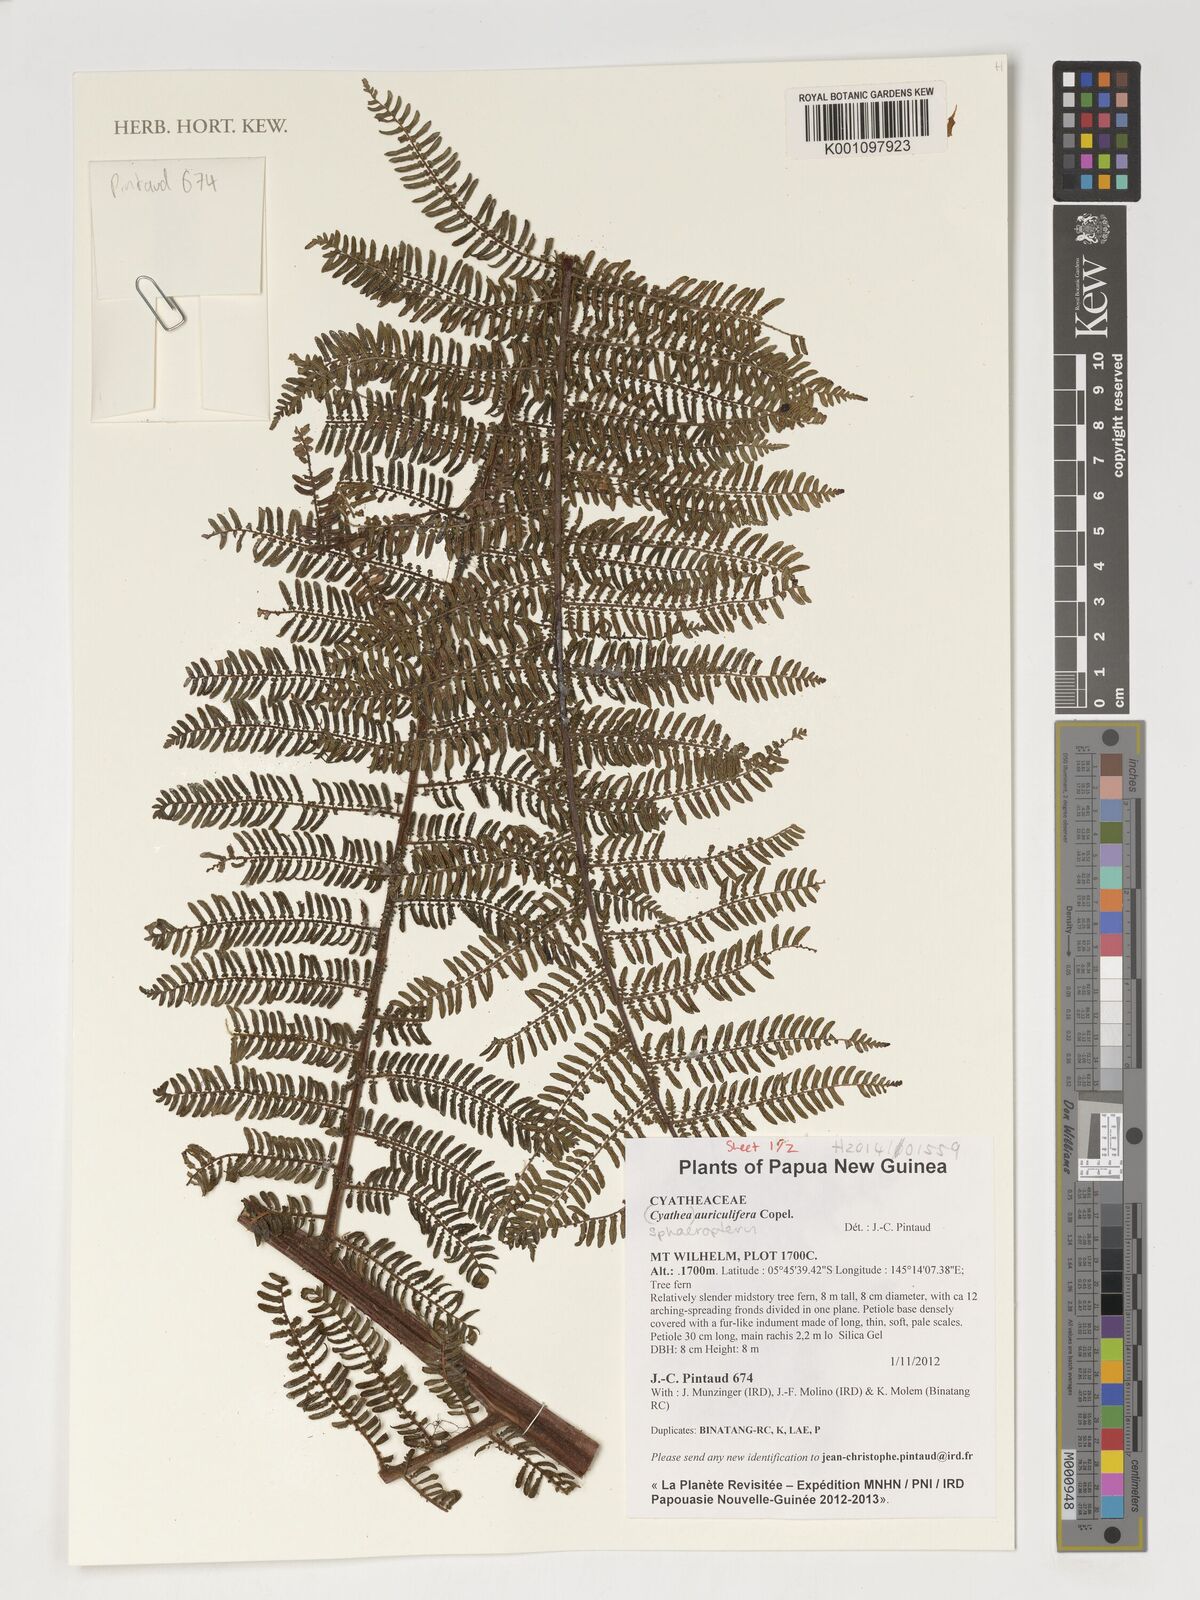 HERB. HORT. KEW.
Pintaud 674
ROYAL BOTANIC GARDENS KEW
K001097923
H
Royal Botanic Gardens
Kew
copyright reserved
0 1 2 3 4 5 6 7 8 9 10
cm
inches
Density
Don Williams
centimeters
M000948
Sheet 1/2
H2014/01559
Plants of Papua New Guinea
CYATHEACEAE
Cyathea auriculifera Copel.
Sphaeropteris
Dét. : J.-C. Pintaud
MT WILHELM, PLOT 1700C.
Alt.: .1700m. Latitude : 05°45'39.42"S Longitude : 145°14'07.38"E;
Tree fern
Relatively slender midstory tree fern, 8 m tall, 8 cm diameter, with ca 12
arching-spreading fronds divided in one plane. Petiole base densely
covered with a fur-like indument made of long, thin, soft, pale scales.
Petiole 30 cm long, main rachis 2,2 m lo Silica Gel
DBH: 8 cm Height: 8 m
1/11/2012
J.-C. Pintaud 674
With : J. Munzinger (IRD), J.-F. Molino (IRD) & K. Molem (Binatang
RC)
Duplicates: BINATANG-RC, K, LAE, P
Please send any new identification to jean-christophe.pintaud@ird.fr
« La Planète Revisitée – Expédition MNHN / PNI / IRD
Papouasie Nouvelle-Guinée 2012-2013».